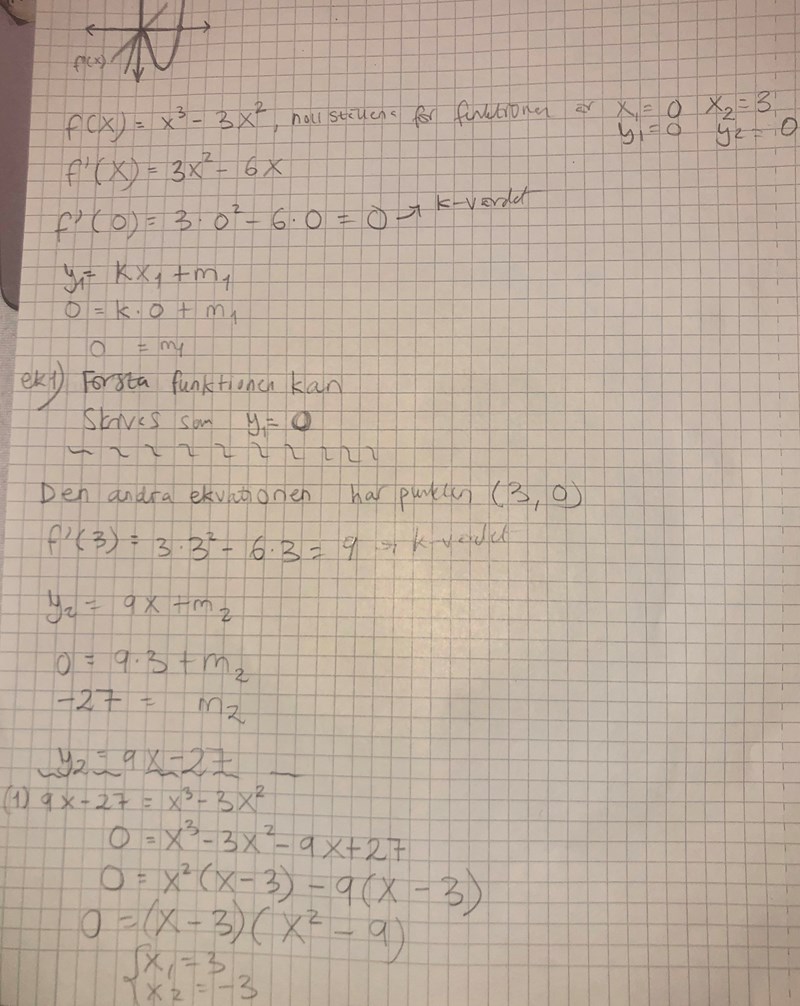 f(x)
f(x) = x³ - 3x², nollställena för funktionen är x₁ = 0 x₂ = 3
y₁ = 0 y₂ = 0
f'(x) = 3x² - 6x
f'(0) = 3·0² - 6·0 = 0 → k-värdet
y₁ = kx₁ + m₁
0 = k·0 + m₁
0 = m₁
ek1) Första funktionen kan
Skrives som y₁ = 0
Den andra ekvationen har punkten (3, 0)
f'(3) = 3·3² - 6·3 = 9 → k-värdet
y₂ = 9x + m₂
0 = 9·3 + m₂
-27 = m₂
y₂ = 9x - 27
(1) 9x - 27 = x³ - 3x²
0 = x³ - 3x² - 9x + 27
0 = x²(x - 3) - 9(x - 3)
0 = (x - 3)(x² - 9)
{x₁ = 3
{x₂ = -3